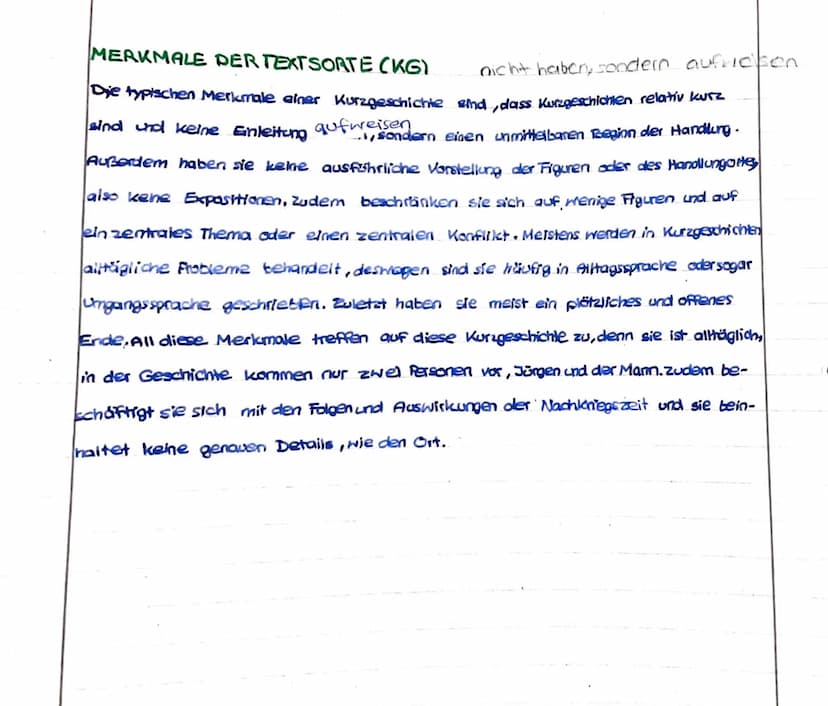 MERKMALE DER TEXTSORTE (KG) nicht haben, sondern aufweisen
Die typischen Merkmale einer Kurzgeschichte sind, dass Kurzgeschichten relativ kurz
sind und keine Einleitung aufweisen, sondern einen unmittelbaren Beginn der Handlung.
Außerdem haben sie keine ausführliche Vorstellung der Figuren oder des Handlungortes,
also keine Expositionen, zudem beschränken sie sich auf wenige Figuren und auf
ein zentrales Thema oder einen zentralen Konflikt. Meistens werden in Kurzgeschichten
alltägliche Probleme behandelt, deswegen sind sie häufig in Alltagssprache oder sogar
Umgangssprache geschrieben. Zuletzt haben sie meist ein plötzliches und offenes
Ende. All diese Merkmale treffen auf diese Kurzgeschichte zu, denn sie ist alltäglich,
in der Geschichte kommen nur zwei Personen vor, Jürgen und der Mann. zudem be-
schäftigt sie sich mit den Folgen und Auswirkungen der Nachkriegszeit und sie bein-
haltet keine genauen Details, wie den Ort.